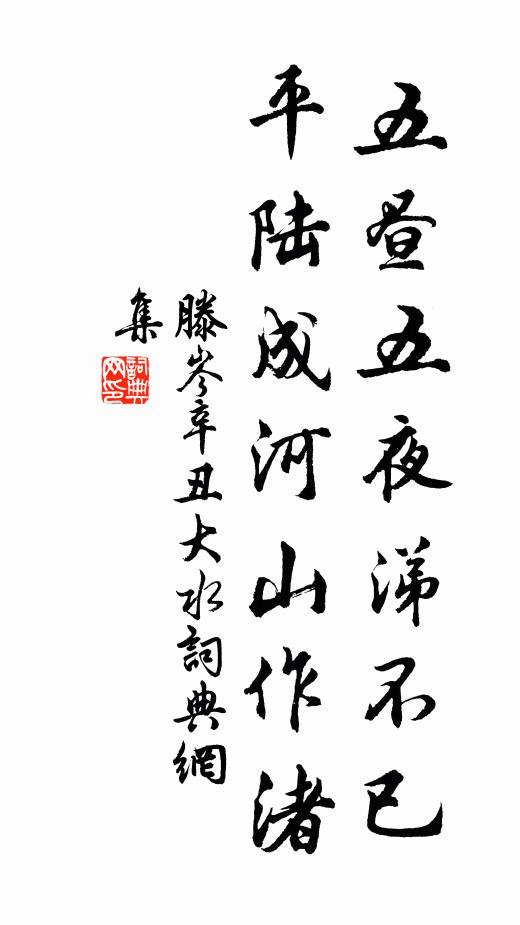 五昼五夜涕不已
平陆成河山作渚
滕岑辛丑大水詞典網
集
詞典
网印